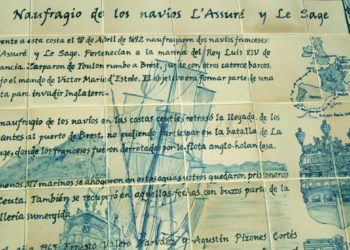 Naufragio de los navíos L'Assuré y Le Sage
ente a esta costa el 18 de Abril de 1692 naufragaron dos navíos franceses:
Assuré y Le Sage. Pertenecían a la marina del Rey Luis XIV de
ancia. Zarparon de Toulon rumbo a Brest, junto con otros catorce barcos,
jo el mando de Victor Marie d'Estrée. El objetivo era formar parte de una
ta para invadir Inglaterra.
naufragio de los navíos en las costas ceutíes retrasó la llegada de los
antes al puerto de Brest, no pudiendo participar en la batalla de La
gue, donde los franceses fueron derrotados por la flota anglo-holandesa.
enos 317 marinos se ahogaron en estas aguas otros quedaron prisioneros
Ceuta. También se recuperó en aquellas fechas con buzos parte de la
llería sumergida.
año 1963 Ernesto Valero Narváez y Agustín Pizones Cortés